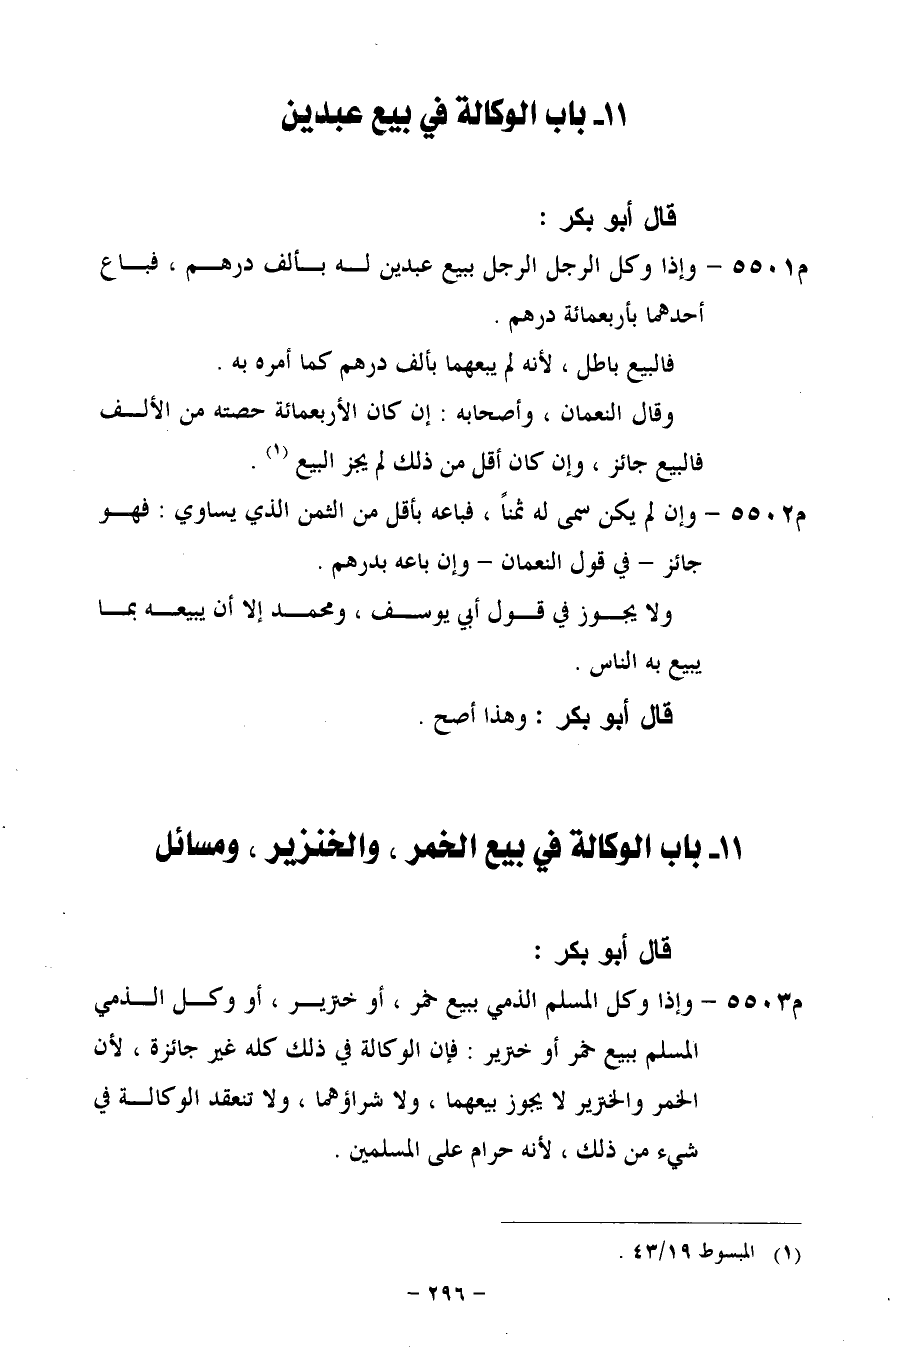 ١١ـ باب الوكالة في بيع عبدين
قال أبو بكر :
م٥٥٠١ – وإذا وكل الرجل الرجل ببيع عبدين لـــه بـــألف درهـــم ، فبـــاع
أحدهما بأربعمائة درهم .
فالبيع باطل ، لأنه لم يبعهما بألف درهم كما أمره به .
وقال النعمان ، وأصحابه : إن كان الأربعمائة حصته من الألـــف
فالبيع جائز ، وإن كان أقل من ذلك لم يجز البيع (١) .
م٥٥٠٢ – وإن لم يكن سمى له ثمناً ، فباعه بأقل من الثمن الذي يساوي : فهـــو
جائز – في قول النعمان – وإن باعه بدرهم .
ولا يجـــوز في قـــول أبي يوســـف ، ومحمـــد إلا أن يبيعـــه بمـــا
يبيع به الناس .
قال أبو بكر : وهذا أصح .
١١ـ باب الوكالة في بيع الخمر ، والخنزير ، ومسائل
قال أبو بكر :
م٥٥٠٣ – وإذا وكل المسلم الذمي ببيع خمر ، أو خنزيـــر ، أو وكـــل الـــذمي
المسلم ببيع خمر أو خنزير : فإن الوكالة في ذلك كله غير جائزة ، لأن
الخمر والخنزير لا يجوز بيعهما ، ولا شراؤهما ، ولا تنعقد الوكالـــة في
شيء من ذلك ، لأنه حرام على المسلمين .
(١) المبسوط ٤٣/١٩ .
– ٢٩٦ –